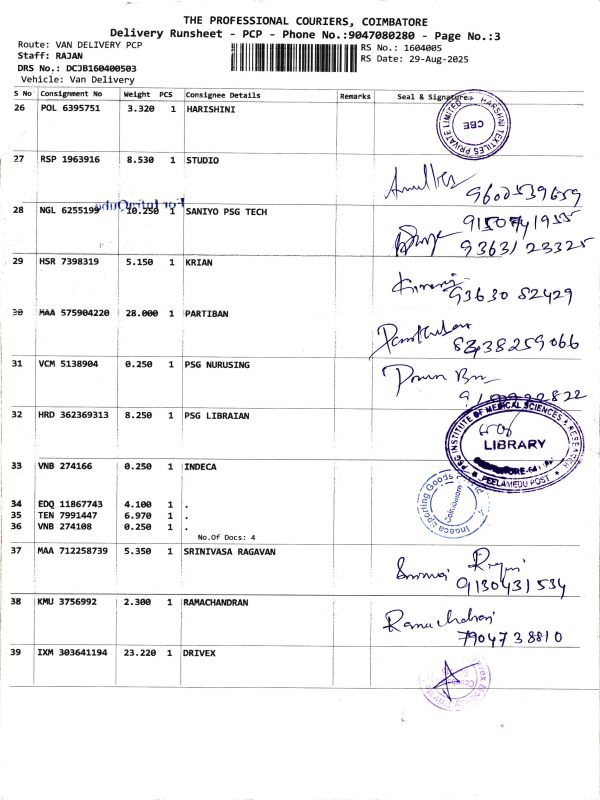 THE PROFESSIONAL COURIERS, COIMBATORE
Delivery Runsheet - PCP - Phone No.:9047080280 - Page No.:3
Route: VAN DELIVERY PCP
RS No.: 1604005
Staff: RAJAN
RS Date: 29-Aug-2025
DRS No.: DCJB160400503
Vehicle: Van Delivery
S No Consignment No Weight PCS Consignee Details Remarks Seal & Signature
26 POL 6395751 3.320 1 HARISHINI
HARSHNI TEXTILES PRIVATE LIMITED
CBE
27 RSP 1963916 8.530 1 STUDIO
9600539659
28 NGL 6255199 10.250 1 SANIYO PSG TECH
9150741955
9363123325
29 HSR 7398319 5.150 1 KRIAN
93630 82429
30 MAA 575904220 28.000 1 PARTIBAN
8238259066
31 VCM 5138904 0.250 1 PSG NURUSING
32 HRD 362369313 8.250 1 PSG LIBRAIAN
PSG INSTITUTE OF MEDICAL SCIENCES & RESEARCH
LIBRARY
PEELAMEDU POST
33 VNB 274166 0.250 1 INDECA
Indeca Sporting Goods
Coimbatore
34 EDQ 11867743 4.100 1 .
35 TEN 7991447 6.970 1 .
36 VNB 274108 0.250 1 .
No.Of Docs: 4
37 MAA 712258739 5.350 1 SRINIVASA RAGAVAN
9130431534
38 KMU 3756992 2.300 1 RAMACHANDRAN
Ramachandran
7904738810
39 IXM 303641194 23.220 1 DRIVEX